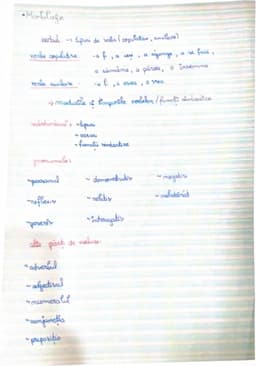 • Morfologie
verbul -> tipuri de verbe (copulative, auxiliare)
verbe copulative -> a fi, a ieși, a ajunge, a se face,
a rămâne, a părea, a însemna
verbe auxiliare -> a fi, a avea, a vrea
-> modurile și timpurile verbelor / funcții sintactice
substantivul: - tipuri
- cazuri
- funcții sintactice
pronumele:
~ personal ~ demonstrativ ~ negativ
~ reflexiv ~ relativ ~ nehotărât
~ posesiv ~ interogativ
alte părți de vorbire:
~ adverbul
~ adjectivul
~ numeralul
~ conjuncția
~ prepoziția